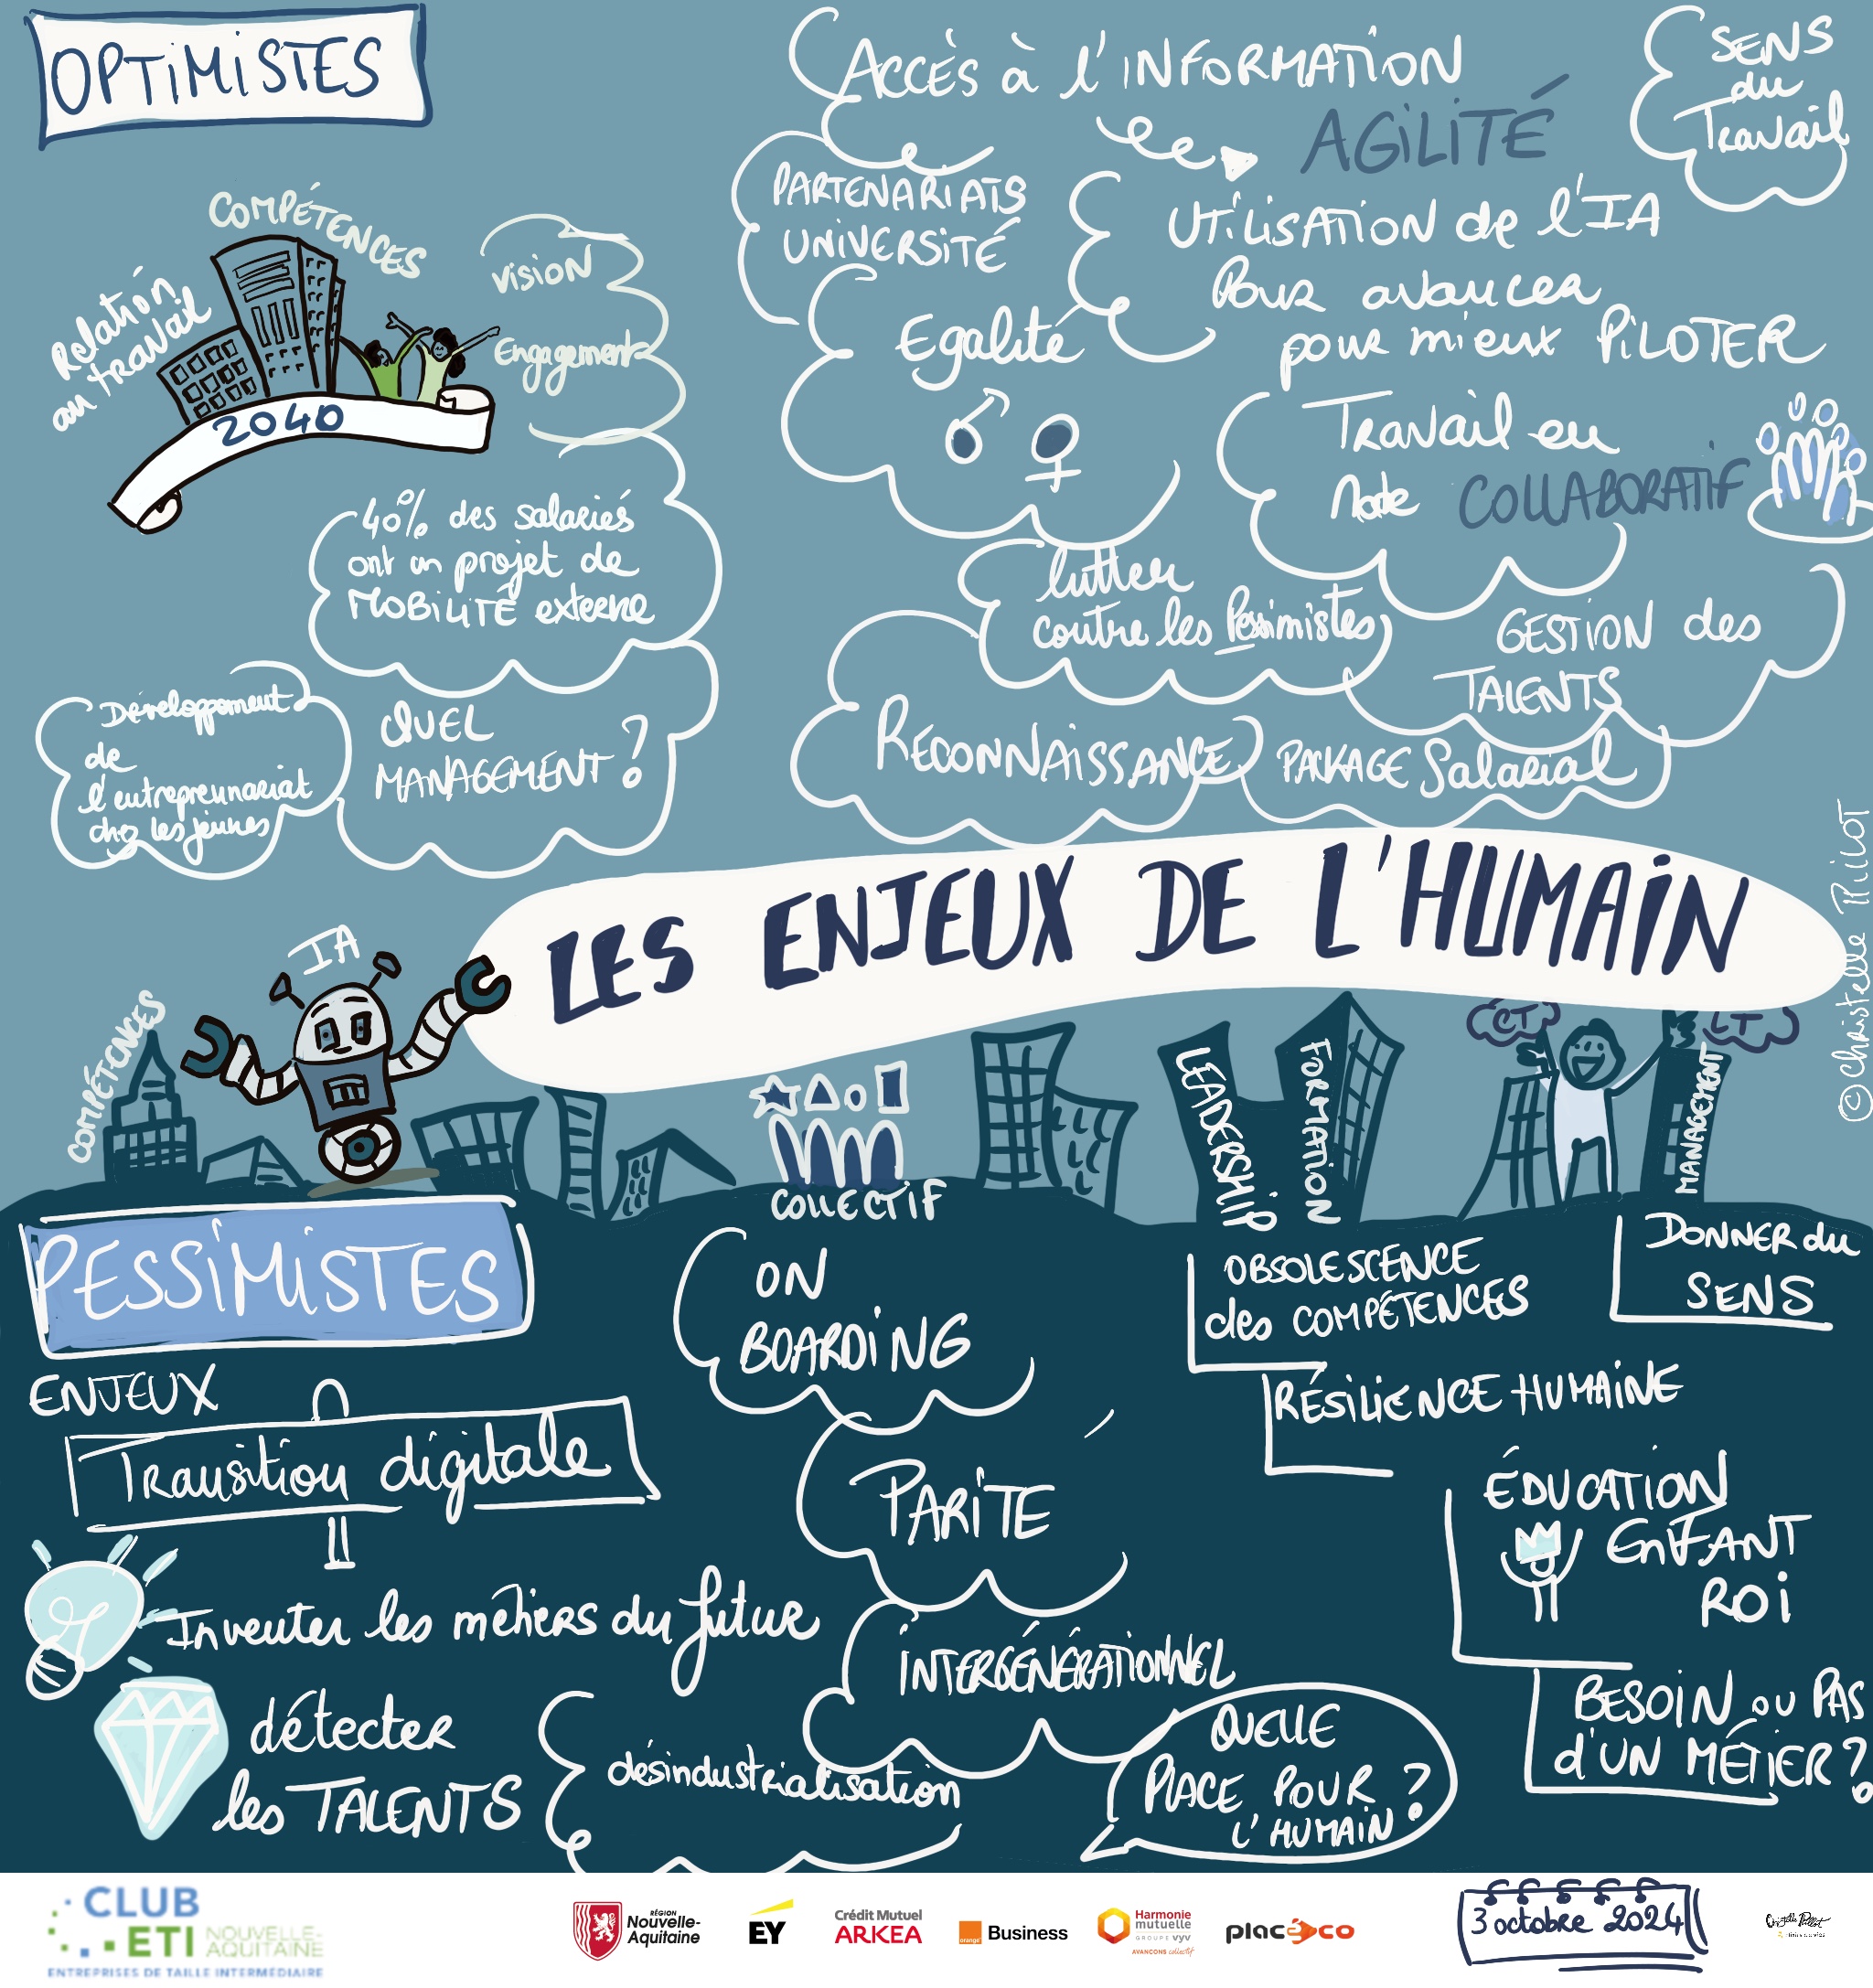 OPTIMISTES
COMPÉTENCES
Relation
au travail
2040
Vision
Engagement
40% des salariés
ont un projet de
MOBILITÉ externe
Développement
de
l'entreprenariat
chez les jeunes
QUEL
MANAGEMENT ?
ACCÈS à l'INFORMATION
AGILITÉ
SENS
du
Travail
PARTENARIATS
UNIVERSITÉ
UTILISATION de l'IA
Pour avancer
pour mieux PILOTER
Egalité
Travail en
Mode COLLABORATIF
lutter
contre les Pessimistes
GESTION des
TALENTS
RECONNAISSANCE
PACKAGE Salarial
LES ENJEUX DE L'HUMAIN
©Christelle Pillot
IA
COMPÉTENCES
COLLECTIF
LEADERSHIP
FORMATION
CT
LT
MANAGEMENT
PESSIMISTES
ENJEUX
Transition digitale
Inventer les métiers du futur
détecter
les TALENTS
ON
BOARDING
PARITE
INTERGÉNÉRATIONNEL
désindustrialisation
QUELLE
PLACE POUR
L'HUMAIN ?
OBSOLESCENCE
des COMPÉTENCES
DONNER du
SENS
RÉSILIENCE HUMAINE
ÉDUCATION
ENFANT
ROI
BESOIN OU PAS
d'UN MÉTIER ?
CLUB
ETI NOUVELLE-
AQUITAINE
ENTREPRISES DE TAILLE INTERMÉDIAIRE
RÉGION
Nouvelle-
Aquitaine
EY
Crédit Mutuel
ARKEA
orange
Business
Harmonie
mutuelle
GROUPE vyv
AVANÇONS collectif
placéco
3 octobre 2024